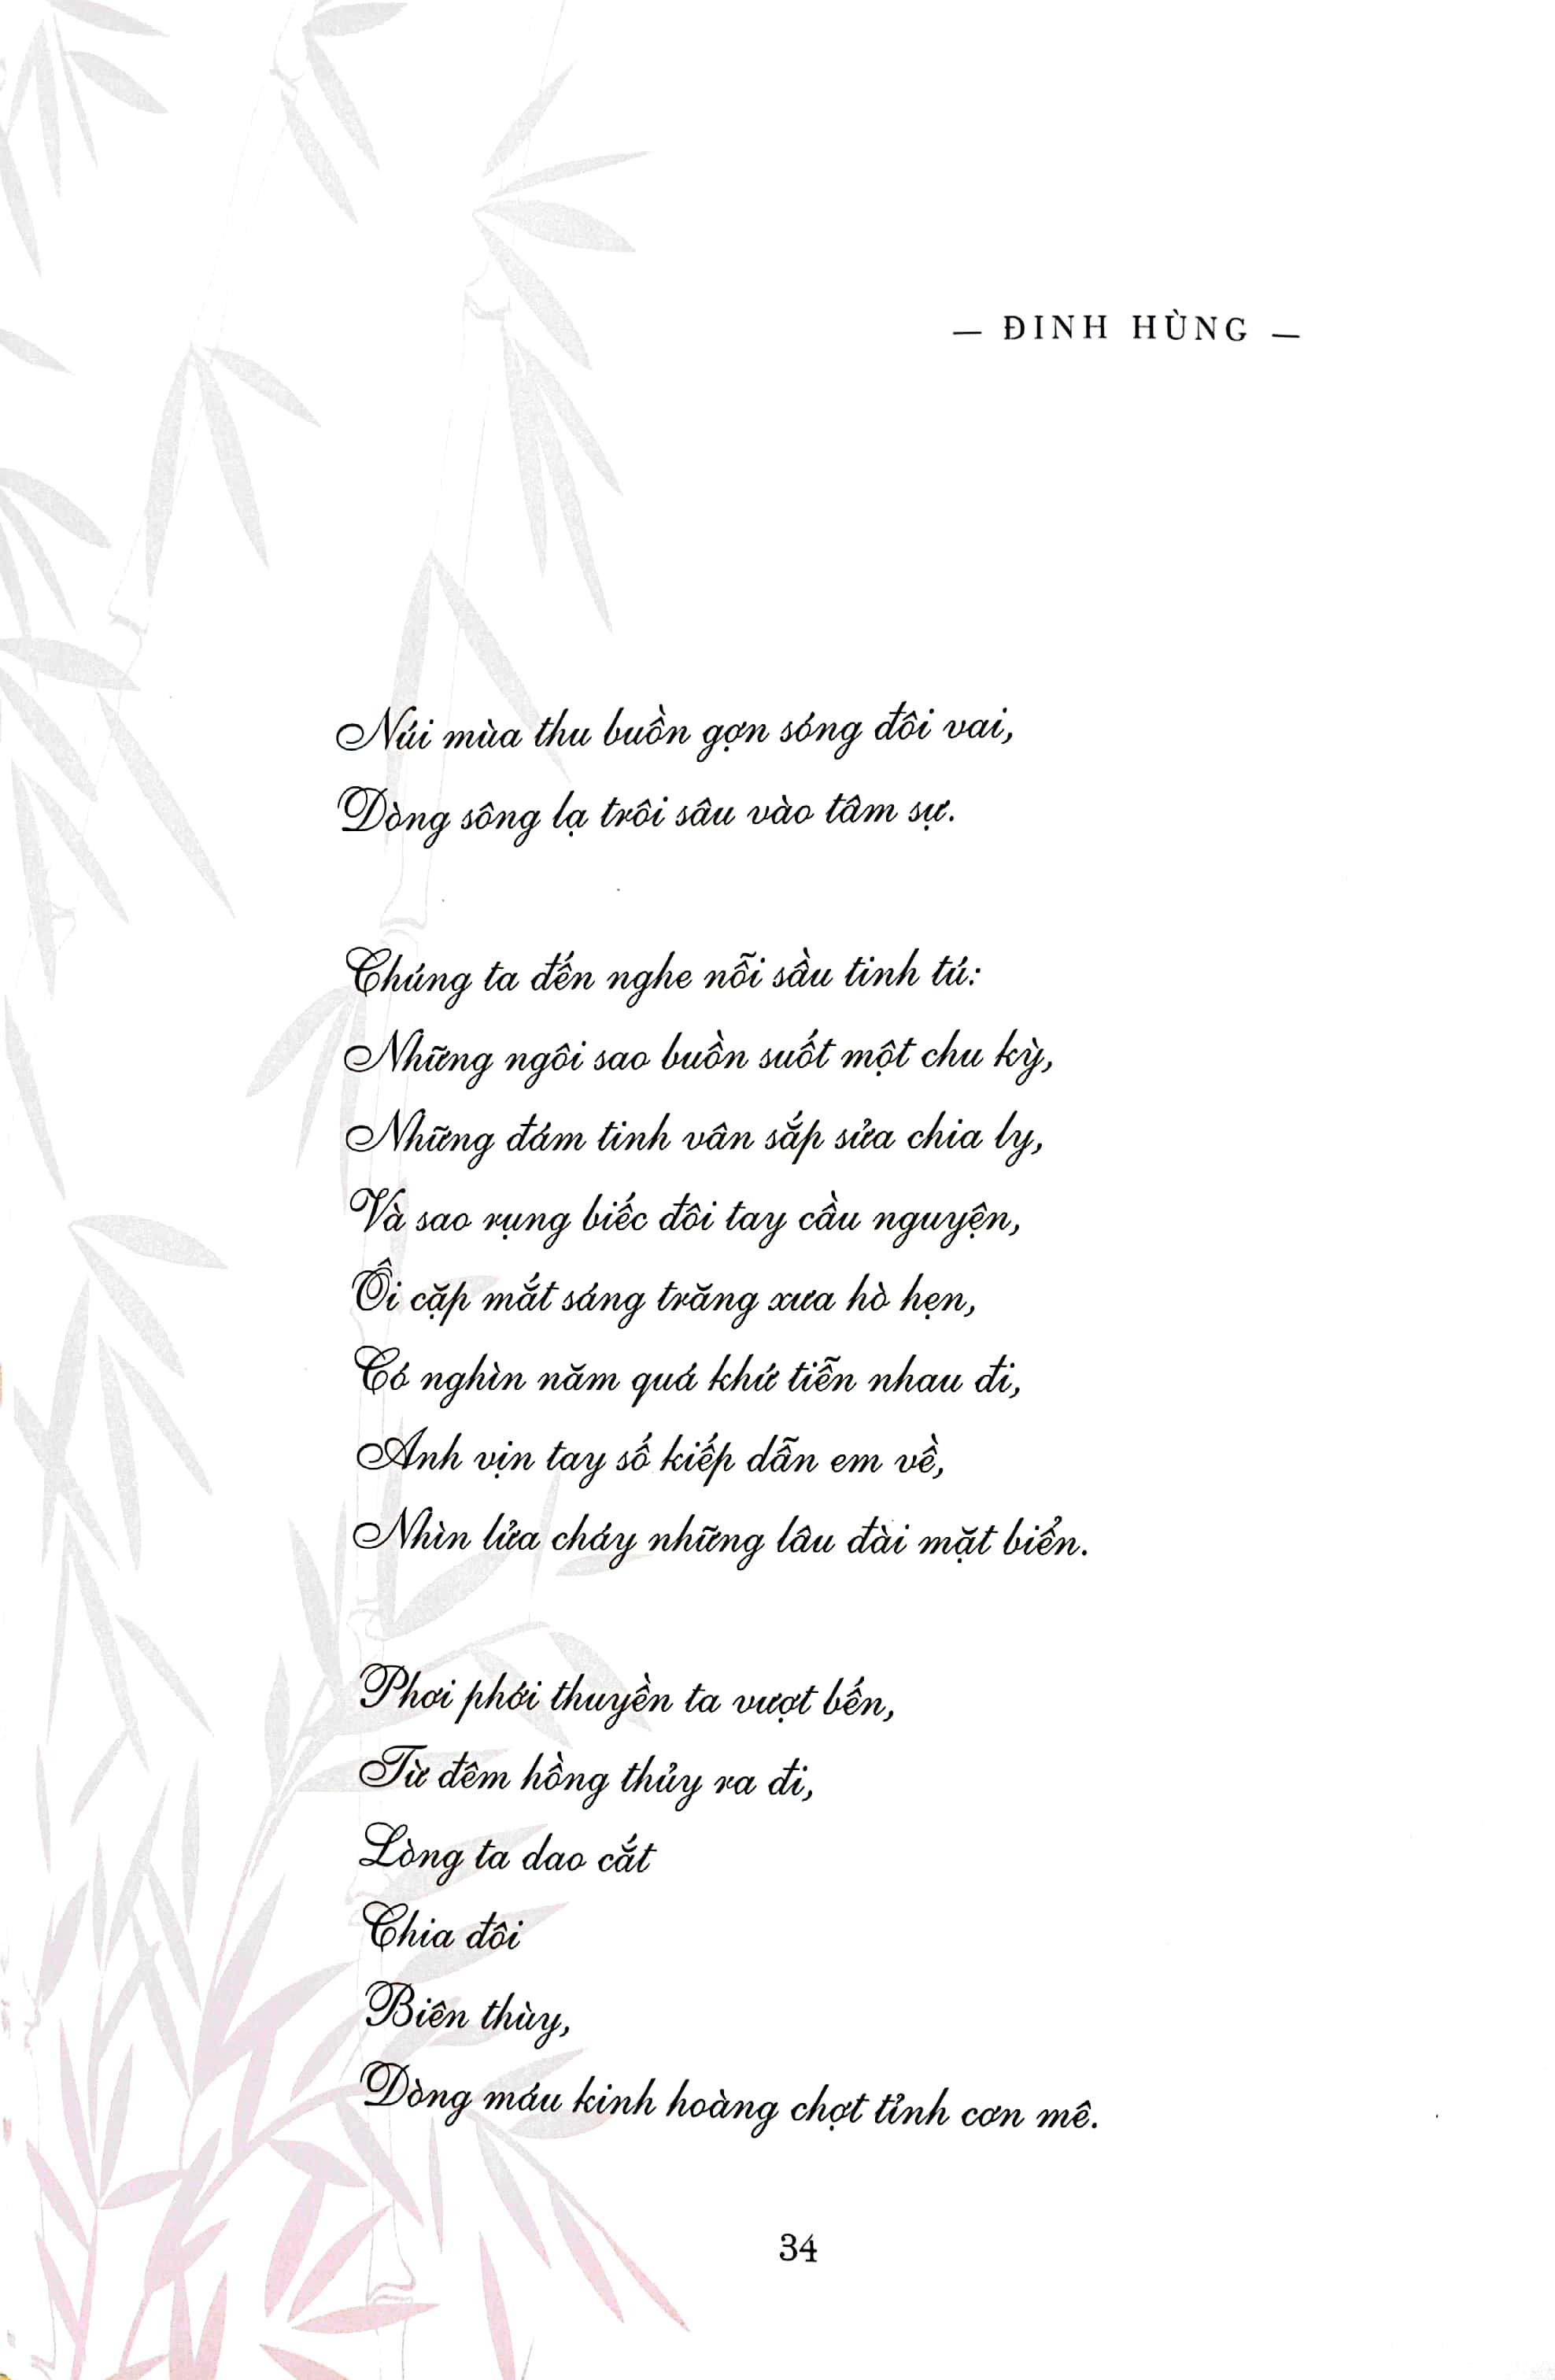 — ĐINH HÙNG —
Núi mùa thu buồn gợn sóng đôi vai,
Dòng sông lạ trôi sâu vào tâm sự.
Chúng ta đến nghe nỗi sầu tinh tú:
Những ngôi sao buồn suốt một chu kỳ,
Những đám tinh vân sắp sửa chia ly,
Và sao rụng biếc đôi tay cầu nguyện,
Ôi cặp mắt sáng trăng xưa hò hẹn,
Có nghìn năm quá khứ tiễn nhau đi,
Anh vịn tay số kiếp dẫn em về,
Nhìn lửa cháy những lâu đài mặt biển.
Phơi phới thuyền ta vượt bến,
Từ đêm hồng thủy ra đi,
Lòng ta dao cắt
Chia đôi
Biên thùy,
Dòng máu kinh hoàng chợt tỉnh cơn mê.
34